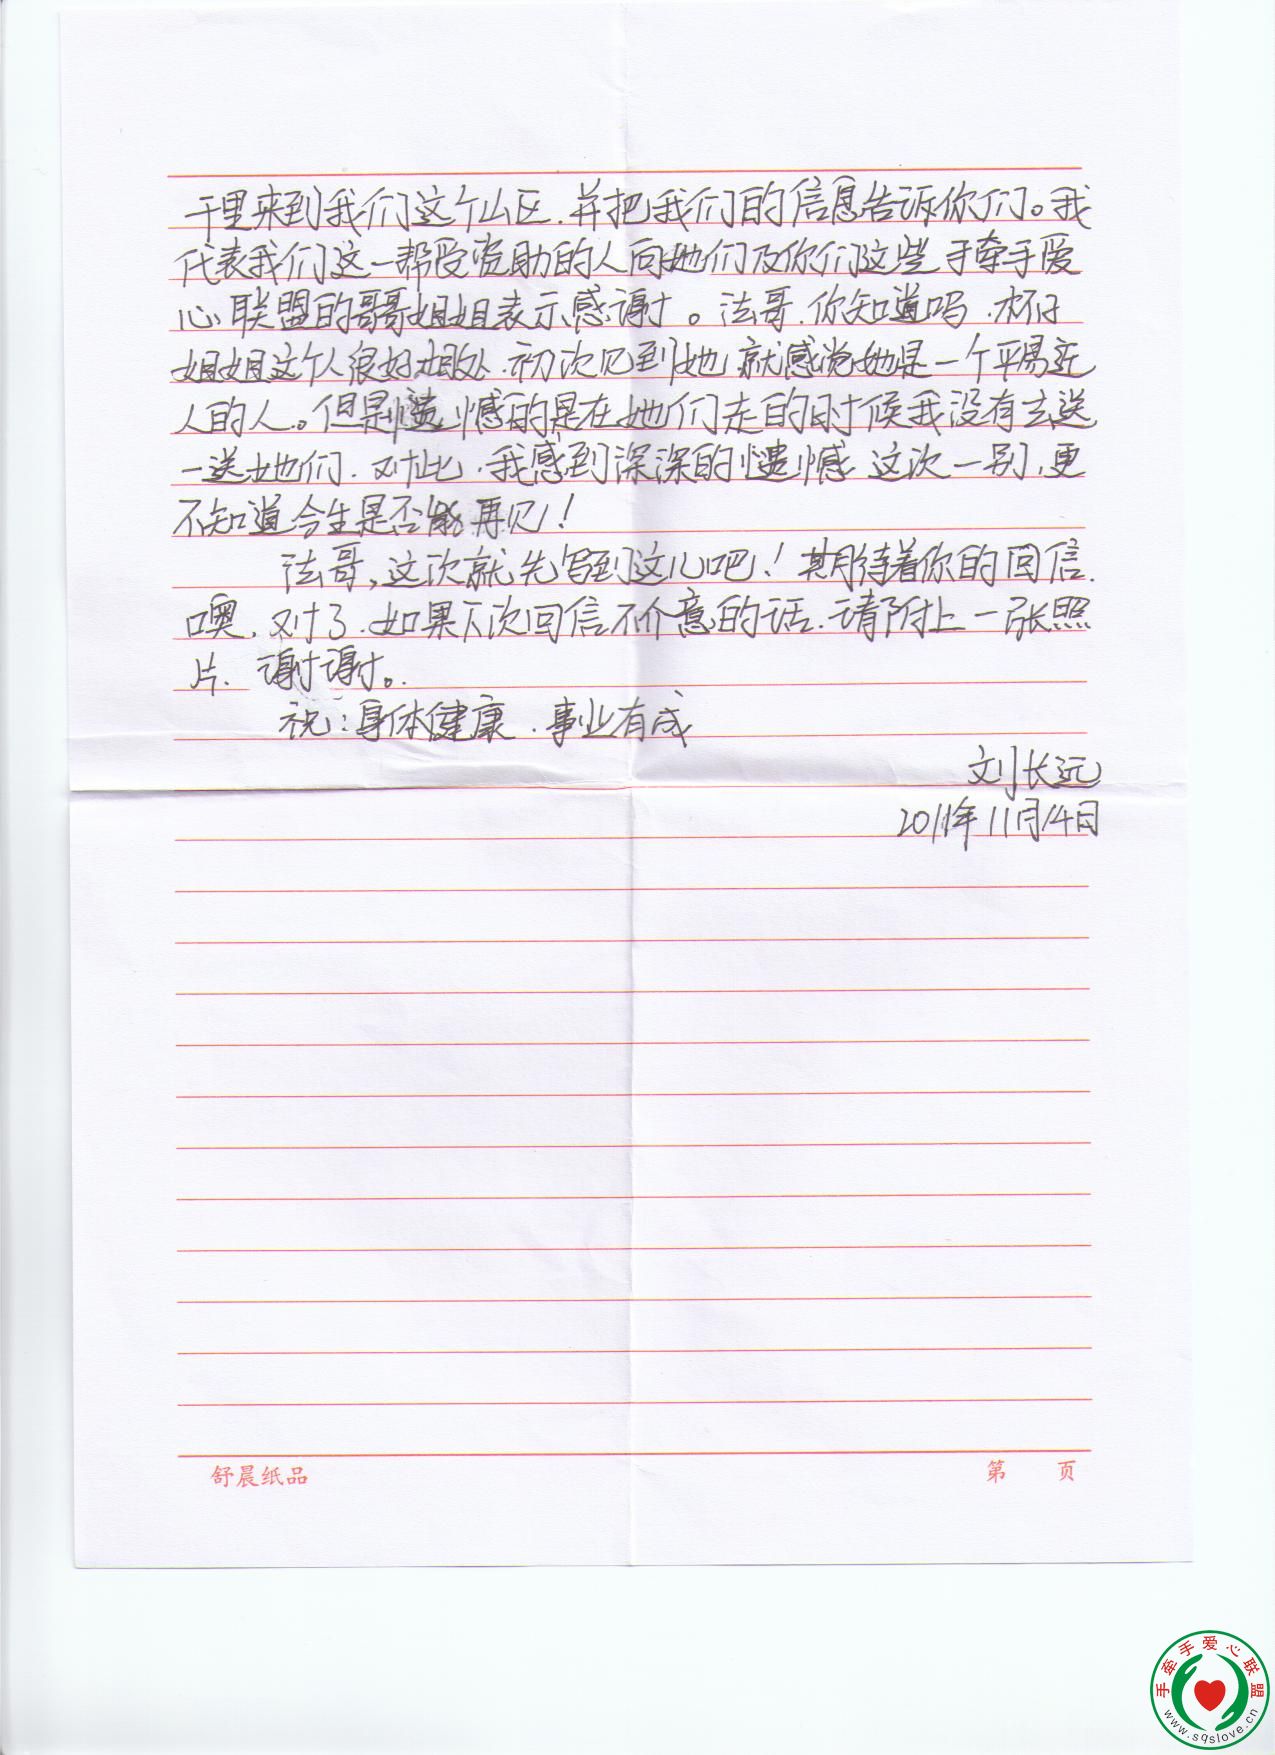 千里来到我们这个山区.并把我们的信息告诉你们。我
代表我们这一帮受资助的人向她们及你们这些手牵手爱
心联盟的哥哥姐姐表示感谢。法哥.你知道吗.
姐姐这个人很好相处.初次见到她就感觉她是一个平易近
人的人。但是遗憾的是在她们走的时候我没有去送
一送她们.对此.我感到深深的遗憾.这次一别.更
不知道今生是否能再见!
法哥,这次就先写到这儿吧!期待着你的回信.
噢.对了.如果下次回信不介意的话.请附上一张照
片.谢谢。
祝:身体健康.事业有成
刘长远
2011年11月14日
舒晨纸品 第 页
手牵手爱心联盟
www.sqslove.cn